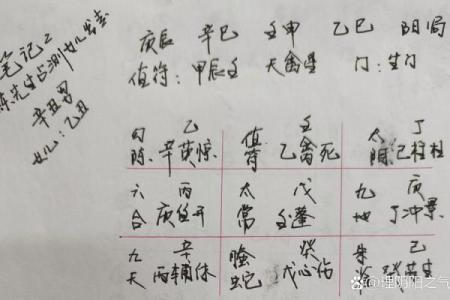 笔记2
陈先生占测女儿
辛丑男
女儿:乙丑
庚辰 辛巳 壬申 乙巳 阴局
值符:甲辰壬 天禽星 门:生门
勾陈 乙 辛英惊
值符 壬 乙禽死
太阴 丁 己柱杜
六合 丙 庚任开
太常 戊 壬蓬
九地 庚 丁冲景
九天 辛 丙辅休
螣蛇 癸 戊心伤
朱雀 己 癸芮生
@理阴阳之气